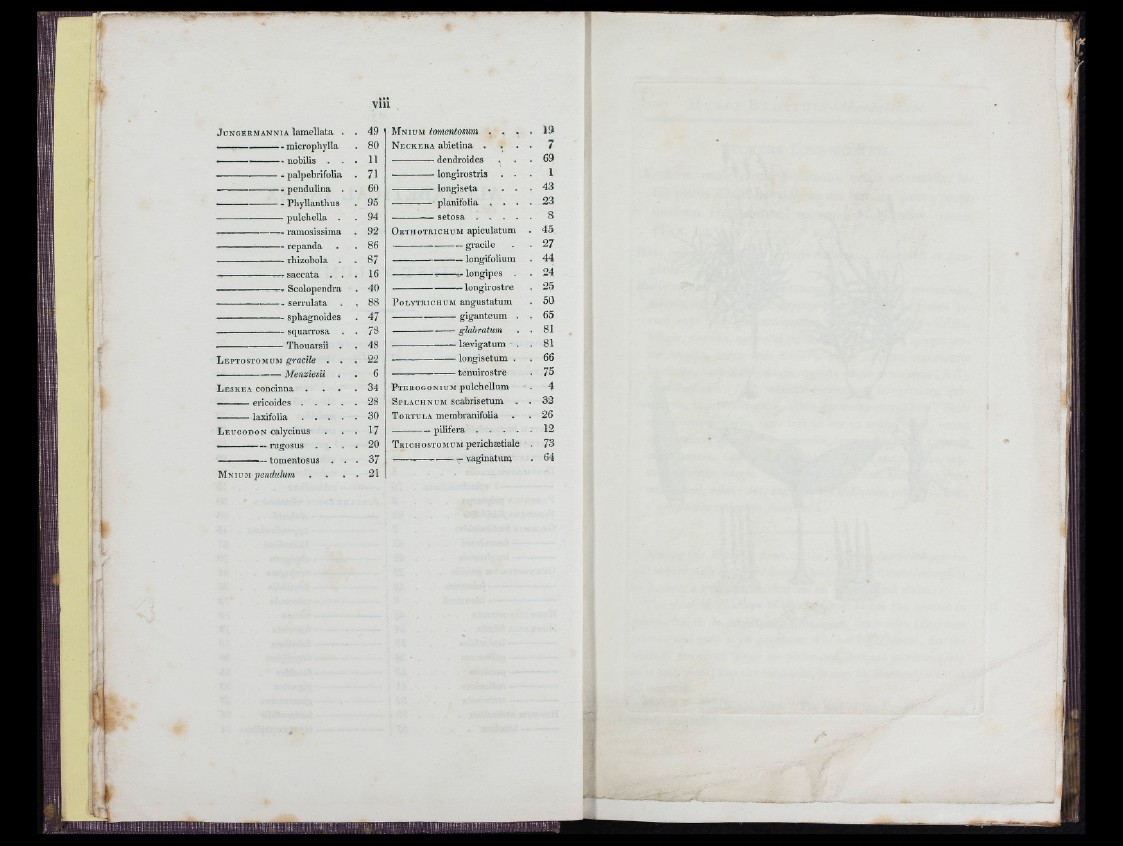 viii
JUNGERMANNIA lamellata . . 49
———— microphylla . 80
———— nobilis . . . 11
———— palpebrifolia . 71
———— pendulina . . 60
———— Phyllanthus . 95
———— pulchella . . 94
———— ramosissima . 92
———— repanda . . 86
———— rhizobola . . 87
———— saccata . . . 16
———— Scolopendra . 40
———— serrulata . . 88
———— sphagnoides . 47
———— squarrosa . . 78
———— Thouarsii . . 48
LEPTOSTOMUM gracile . . . 22
———— Menziesii . . 6
LESKEA concinna . . . . 34
———— ericoides . . . . . 28
———— laxifolia . . . . . 30
LEUCODON calycinus . . . 17
———— rugosus . . . . 20
———— tomentosus . . . 37
MNIUM pendulum . . . . 21
MNIUM tomentosum . . . . 19
NECKERA abietina . . . . 7
———— dendroides . . . 69
———— longirostris . . . 1
———— longiseta . . . . 43
———— planifolia . . . . 23
———— setosa . . . . . 8
ORTHOTRICHUM apiculatum . 45
———— gracile . . 27
———— longifolium . 44
———— longipes . . 24
———— longirostre . 25
POLYTRICHUM angustatum . 50
———— giganteum . . 65
———— glabratum . . 81
———— lævigatum . . 81
———— longisetum . . 66
———— tenuirostre . 75
PTEROGONIUM pulchellum . 4
SPLACHNUM scabrisetum . . 32
TORTULA membranifolia . . 26
———— pilifera . . . . . 12
TRICHOSTOMUM perichætiale . 73
———— vaginatum . 64